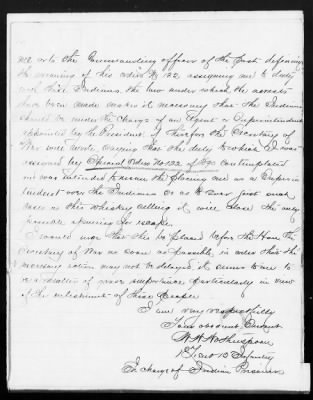 me or to the Commanding officer of the post defining
the meaning of his order No 122 assigning me to duty
with these Indians. the law under which the arrests
have been made makes it necessary that the Indians
should be under the charge of an Agent or Superintendent
appointed by the President. if therefore the Secretary of
War will write saying that the duty to which I was
assigned by Special Orders No 122 of contemplated
and was intended the placing me as a Superin
tendent over the Indians so as to cover just such
case as this whiskey selling it will close the only
possible opening for escape.
I would urge that this be placed before the Hon the
Secretary of War as soon as possible, in order that the
necessary action may not be delayed, it seems to me to
be a matter of importance particularly in view
of the enlistment of these people
I am very respectfully
Your obedient Servant
1st Lieut 10 Infantry
In charge of Indian Prisoners